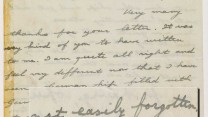 Very many
thanks for your letter. It was
very kind of you to have written
to me. I am quite all right and
feel very different now that I have
been human ship filled with
Gun
not easily forgotten